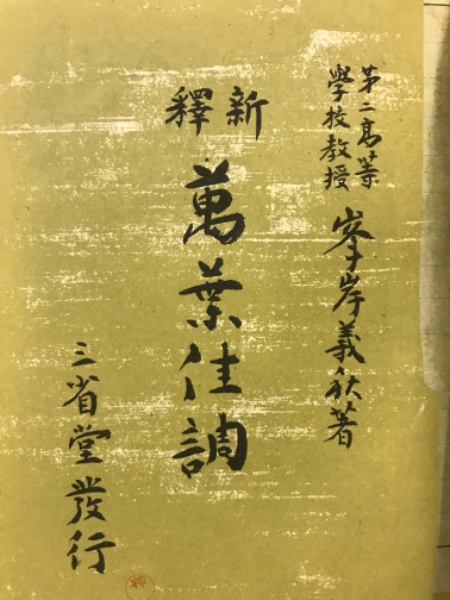 第二高等
學校教授
峯岸義秋著
新釋
萬葉佳調
三省堂發行